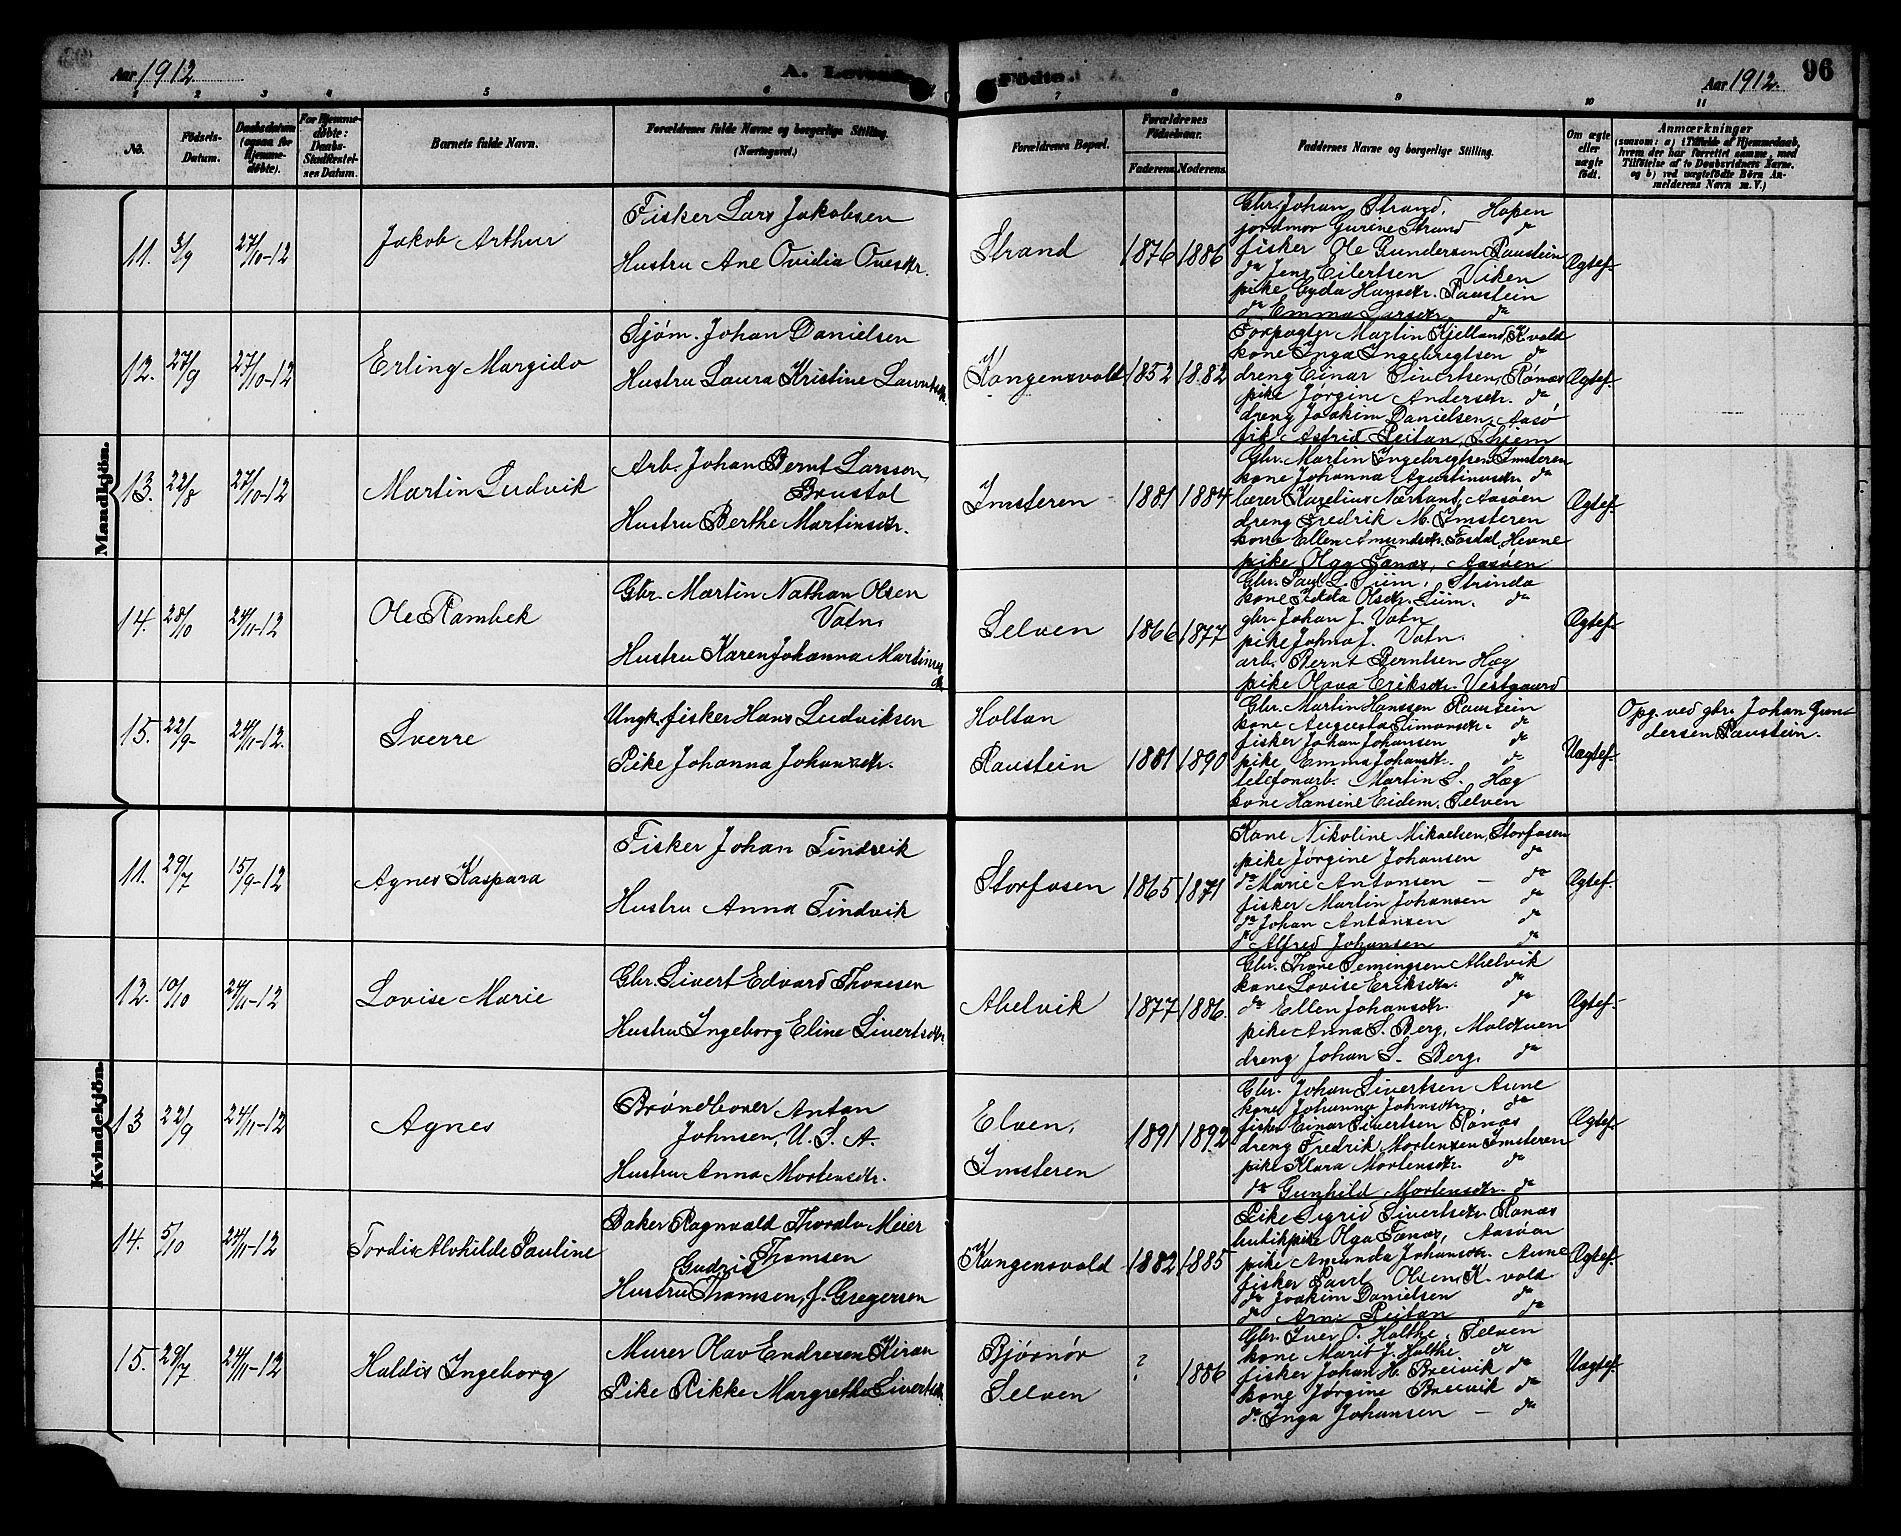 Aar 1912
A. Levende
Födte.
Aar 1912.
96
1 2 3 4 5 6 7 8 9 10 11
No.
Födsels-
Datum.
Daabsdatum
(ogsaa for
Hjemme-
döbte).
For Hjemme-
döbte:
Daabs-
Stadfæstel-
ses Datum.
Barnets fulde Navn.
Forældrenes fulde Navne og borgerlige Stilling.
(Næringsvei.)
Forældrenes Bopæl.
Forældrenes
Födselsaar.
Faderens.
Moderens.
Faddernes Navne og borgerlige Stilling.
Om ægte
eller
uægte
födt.
Anmærkninger
(saasom: a) i Tilfælde af Hjemmedaab,
hvem der har forrettet samme, med
Tilföielse af to Daabsvidners Navne.
og b) ved uægtefödte Börn An-
melderens Navn m. V.)
Mandkjön.
11. 3/9 27/10-12
Jakob Arthur
Fisker Lars Jakobsen
Hustru Ane Ovidia Ovesdtr.
Strand
1876 1886
Gbr. Johan Strand, Hopen
jordmor Gurine Strand do
fisker Ole Gundersen Paustein
do Jens Eilertsen Viken
pike Gyda Hansdtr. Paustein
do Emma Larsdtr. do
Ægtef.
12. 27/9 27/10-12
Erling Margido
Sjøm. Johan Danielsen
Hustru Laura Kristine Laurntsdtr.
Kongensvold
1852 1882
Forpagter Martin Kjelland, K.vold
kone Inga Ingebregtsen do
dreng Einar Sivertsen, Rønas
pike Jørgine Andersdtr. do
dreng Joakim Danielsen, Aasø
frk. Astrid Reitan, Thjem
Ægtef.
13. 22/8 27/10-12
Martin Ludvik
Arb. Johan Bernt Larsson
Brustol
Hustru Berthe Martinsdtr.
Imsteren
1881 1884
Gbr. Martin Ingebregtsen Imsteren
kone Johanna Agustinusdtr. do
lærer Karelius Næsland, Aasøen
dreng Fredrik M. Imsteren
kone Ellen Amundsdtr. Fosdal, Hevne
pike Olga Fanas, Aasøen
Ægtef.
14. 28/10 24/11-12
Ole Rambek
Gbr. Martin Nathan Olsen
Vatn.
Hustru Karen Johanna Martinus
dtr.
Selven
1866 1877
Gbr. Paul L. Siim, Strinda
kone Jekka Olsdtr. Siim. do
gbr. Johan J. Vatn
pike Johna J. Vatn.
arb. Bernt Berntsen Hæg
pike Olava Eriksdtr. Vestgaard
Ægtef.
15. 22/9- 24/11-12.
Sverre
Ungk. fisker Hans Ludviksen
Pike Johanna Johansdtr.
Holtan
Raustein
1881 1890
Gbr. Martin Hanssen Raustein
kone Augusta Simonsdtr. do
fisker Johan Johansen do
pike Emma Johansdtr. do
telefonarb. Martin S. Hæg
kone Hansine Eidem, Selven
Uægtef.
Opg. ved gbr. Johan Gun-
dersen Paustein.
Kvindekjön.
11. 29/7 15/9-12
Agnes Kaspara
Fisker Johan Tindvik
Hustru Anna Tindvik
Storfosen
1865 1871
Kone Nikoline Mikaelsen, Storfosen
pike Jørgine Johansen do
do Marie Antonsen - do
fisker Martin Johansen do
do Johan Antonsen do
do Alfred Johansen do
Ægtef.
12. 10/10 24/11-12
Lovise Marie
Gbr. Sivert Edvard Thonesen
Hustru Ingeborg Eline Sivertsdtr.
Abelvik
1877 1886.
Gbr. Thone Semingsen Abelvik
kone Lovise Eriksdtr. do
do Ellen Johansdtr. do
pike Anna S. Berg, Moldtuen
dreng Johan S. Berg. do
Ægtef.
13 22/9 24/11-12
Agnes
Brøndborer Anton
Johnsen, U. S. A.
Hustru Anna Mortensdtr.
Elven,
Imsteren
1891 1892
Gbr. Johan Sivertsen Aune
kone Johanna Johnsdtr. do
fisker Einar Sivertsen Rønas
dreng Fredrik Mortensen Imsteren
pike Klara Mortensdtr. do
do Gunhild Mortensdtr. do
Ægtef.
14. 5/10 24/11-12
Tordis Alvhilde Pauline
Baker Ragnvald Thoralv Meier
Thomsen
Gudrid
Hustru Thomsen, f. Gregersen
Kongensvold
1882 1885
Pike Sigrid Sivertsdtr. Rønas
butikpike Olga Fanas, Aasøen
pike Amanda Johansdtr. Aune
fisker Paul Olsen, K. vold
do Joakim Danielsen do
do Arne Reitan do
Ægtef.
15. 29/7 24/11-12
Haldis Ingeborg
Murer Olav Endresen Kiran
Pike Rikke Margrethe Sivertsdtr.
Bjørnør
Selven
? 1886
Gbr. Iver O. Holthe, Selven
kone Marit J. Holthe do
fisker Johan H. Breivik do
kone Jørgine Breivik do
do Inga Johansen - do
Uægtef.